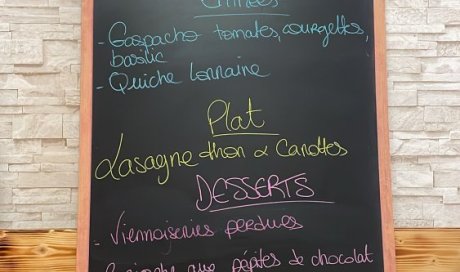 Entrées
- Gaspacho tomates, courgettes,
basilic
- Quiche Lorraine
Plat
Lasagne thon & Carottes
DESSERTS
- Viennoiseries perdues
- Brioche aux pépites de chocolat